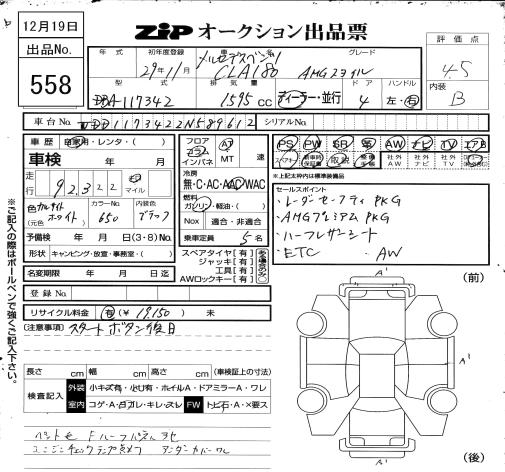 12月19日
ZIP オークション出品票
出品No.
558
年式
初年度登録
車名
グレード
評価点
29年11月
メルセデスベンツ
CLA180
AMGスタイル
4.5
型式
排気量
ドア
ハンドル
内装
DBA117342
1595 cc
ディーラー・並行
4
左・右
B
車台No.
WDD1173422N589612
シリアルNo.
車歴
自家用・レンタ・( )
車検
年 月
走行
92,322
km
マイル
色
カルサイト
ホワイト
(元色)
カラーNo.
650
内装色
ブラック
予備検
年 月 日(3・8)No.
形状
キャンピング・放宣・事務室・( )
名変期限
年 月 日迄
登録No.
リサイクル料金
有(¥ 19,150 ) 未
フロア
コラム
インパネ
AT
MT
速
冷房
無・C・AC・AAC・WAC
燃料
ガソリン・軽油・( )
Nox
適合・非適合
乗車定員
5名
スペアタイヤ[有]
ジャッキ[有]
工具[有]
AWロックキー[有]
PS
PW
SR
革
AW
ナビ
TV
エアB
スペアキー
新車時保証書
取説
整備手帳
社外AW
社外ナビ
社外TV
*上記太枠内は標準装備品
セールスポイント
・レーダーセーフティPKG
・AMGプレミアムPKG
・ハーフレザーシート
・ETC ・AW
(注意事項)
スタートボタン後日
長さ cm 幅 cm 高さ cm (車検証上の寸法)
検査記入
外装
小キズ有・小凹有・ホイルA・ドアミラーA・ワレ
室内
コゲ・A・白フレ・キレ・スレ
FW
トビ石・A・×要ス
エンジンチェックランプ点灯 アンダーカバーワレ
※ご記入の際はボールペンで強くご記入下さい。
(前)
A'
A'
A'
(後)